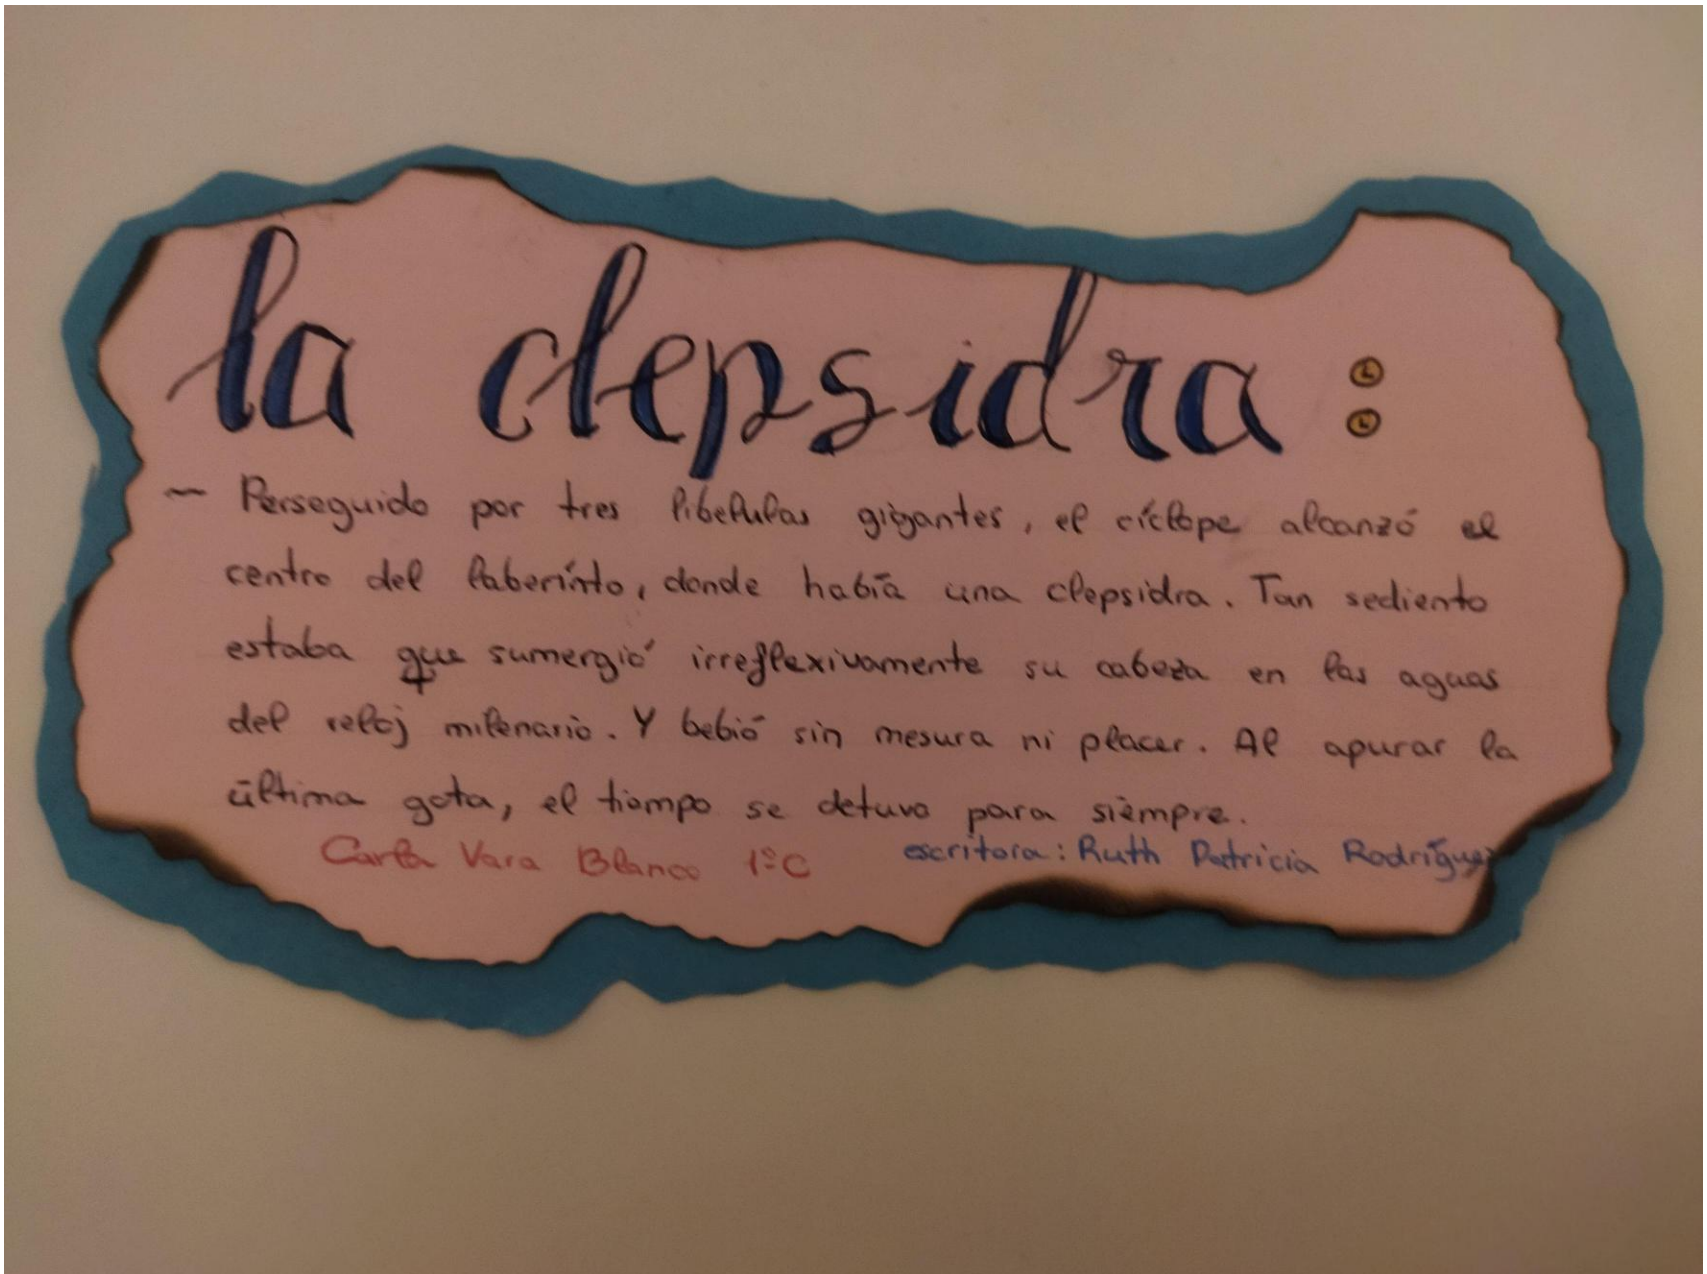 la clepsidra:
~ Perseguido por tres libelulas gigantes, el cíclope alcanzó el
centro del laberinto, donde había una clepsidra. Tan sediento
estaba que sumergió irreflexivamente su cabeza en las aguas
del reloj milenario. Y bebió sin mesura ni placer. Al apurar la
última gota, el tiempo se detuvo para siempre.
Carla Vara Blanco 1ºC escritora: Ruth Patricia Rodríguez